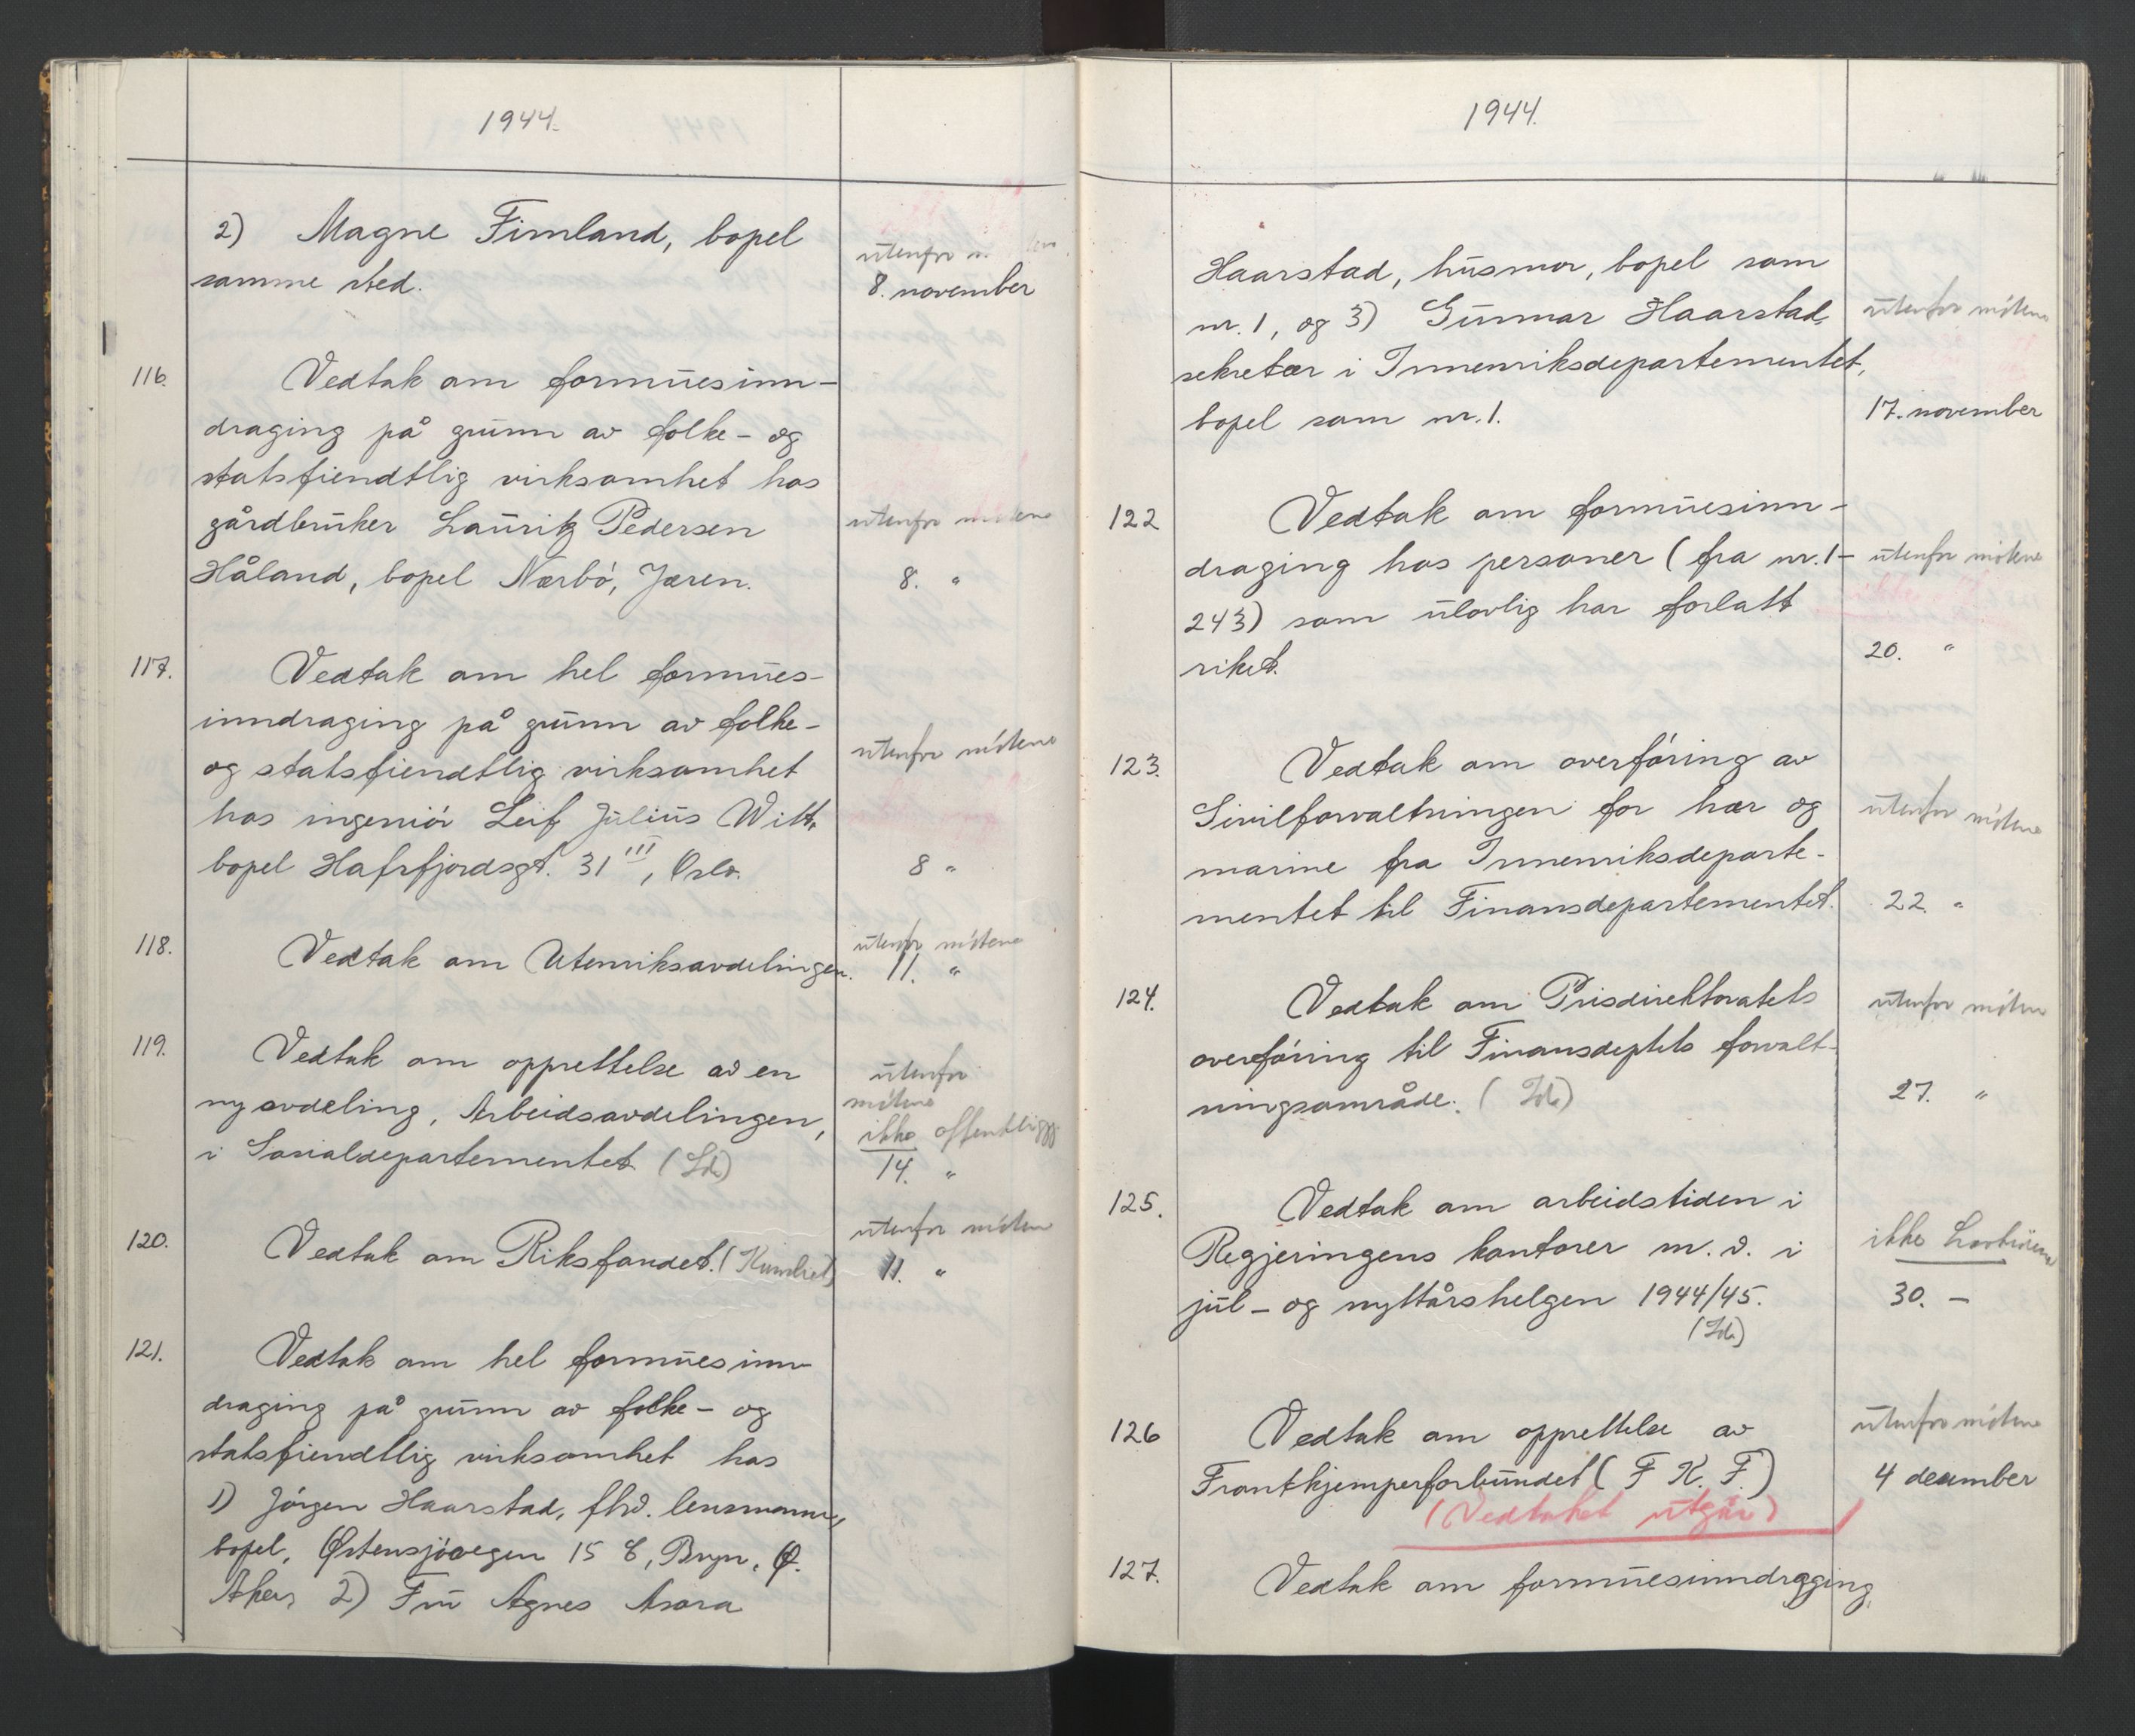 1944.
2) Magne Fimland, bopel
samme sted.
utenfor
8. november
116. Vedtak om formuesinn-
draging på grunn av folke- og
statsfiendtlig virksomhet hos
gårdbruker Lauritz Pedersen
Håland, bopel Nærbö, Jæren.
utenfor mötene
8. "
117. Vedtak om hel formues-
inndraging på grunn av folke-
og statsfiendtlig virksomhet
hos ingeniör Leif Julius Witt,
bopel Hafrfjordsgt. 31 III, Oslo.
utenfor mötene
8 "
118. Vedtak om Utenriksavdelingen.
utenfor mötene
11. "
119. Vedtak om opprettelse av en
ny avdeling, Arbeidsavdelingen,
i Sosialdepartementet
utenfor
mötene
ikke offentliggj.
14. "
120. Vedtak om Riksfondet.
utenfor mötene
11. "
121. Vedtak om hel formuesinn-
draging på grunn av folke- og
statsfiendtlig virksomhet hos
1) Jörgen Haarstad, fhv. lensmann,
bopel, Østensjöveien 15 b, Bryn, Ø.
Aker, 2) Fru Agnes Asora
1944.
Haarstad, husmor, bopel som
nr. 1, og 3) Gunnar Haarstad,
sekretær i Innenriksdepartementet,
bopel som nr. 1.
utenfor mötene
17. november
122 Vedtak om formuesinn-
draging hos personer (fra nr. 1-
243) som ulovlig har forlatt
riket.
utenfor mötene
20. "
123. Vedtak om overföring av
Sivilforvaltningen for hær og
marine fra Innenriksdeparte-
mentet til Finansdepartementet.
utenfor mötene
22. "
124. Vedtak om Prisdirektoratets
overföring til Finansdeptets forvalt-
ningsområde.
utenfor mötene
27. "
125. Vedtak om arbeidstiden i
Regjeringens kontorer m. v. i
jul- og nyttårshelgen 1944/45.
ikke
30. -
126 Vedtak om opprettelse av
Frontkjemperforbundet (F. K. F.)
(Vedtaket utgår)
utenfor mötene
4 desember
127. Vedtak om formuesinndragging